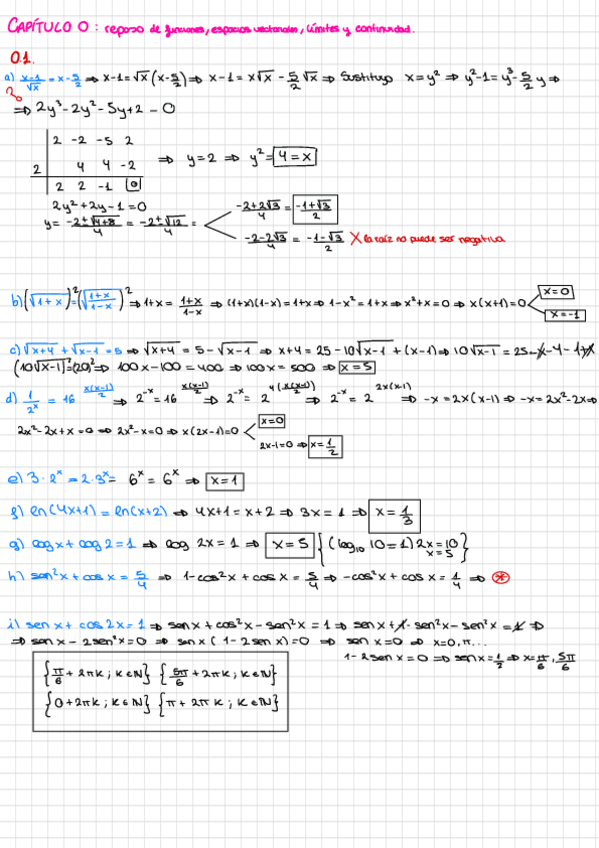 CAPÍTULO 0: repaso de funciones, espacios vectoriales, límites y continuidad.
0.1.
a) x-1/√x = x-5/2 ⇒ x-1=√x (x-5/2) ⇒ x-1 = x√x - 5/2 √x ⇒ Sustituyo x=y² ⇒ y²-1=y³-5/2 y ⇒
⇒ 2y³-2y²-5y+2 = 0
2 -2 -5 2
2 4 4 -2 ⇒ y=2 ⇒ y²= 4=x
2 2 -1 0
2y²+2y-1=0
y= -2±√4+8/4 = -2±√12/4 = -2+2√3/4 = -1+√3/2
-2-2√3/4 = -1-√3/2 X la raíz no puede ser negativa
b) (√1+x)² = (√1+x/1-x)² ⇒ 1+x = 1+x/1-x ⇒ (1+x)(1-x)=1+x ⇒ 1-x²=1+x ⇒ x²+x=0 ⇒ x(x+1)=0 x=0
x=-1
c) √x+4 + √x-1 = 5 ⇒ √x+4 = 5-√x-1 ⇒ x+4 = 25-10√x-1 + (x-1) ⇒ 10√x-1 = 25-x-4-1+x
(10√x-1)²=(20)² ⇒ 100x-100=400 ⇒ 100x=500 ⇒ x=5
d) 1/2ˣ = 16^(x(x-1)/2) ⇒ 2^-x=16^(x(x-1)/2) ⇒ 2^-x=2^(4(x(x-1)/2)) ⇒ 2^-x=2^(2x(x-1)) ⇒ -x=2x(x-1) ⇒ -x=2x²-2x ⇒
2x²-2x+x=0 ⇒ 2x²-x=0 ⇒ x(2x-1)=0 x=0
2x-1=0 ⇒ x=1/2
e) 3·2ˣ = 2·3ˣ = 6ˣ = 6ˣ ⇒ x=1
f) ln(4x+1) = ln(x+2) ⇒ 4x+1=x+2 ⇒ 3x=1 ⇒ x=1/3
g) log x + log 2=1 ⇒ log 2x=1 ⇒ x=5 {(log₁₀ 10=1) 2x=10
x=5}
h) sen²x + cos x = 5/4 ⇒ 1-cos²x + cos x = 5/4 ⇒ -cos²x + cos x = 1/4 ⇒ *
i) sen x + cos 2x=1 ⇒ sen x + cos²x - sen²x = 1 ⇒ sen x + 1 - sen²x - sen²x = 1 ⇒
⇒ sen x - 2sen²x=0 ⇒ sen x (1-2sen x)=0 ⇒ sen x=0 ⇒ x=0,π...
1-2sen x=0 ⇒ sen x=1/2 ⇒ x=π/6, 5π/6
{π/6 + 2πk; k∈N} {5π/6 + 2πk; k∈N}
{0+2πk; k∈N} {π + 2πk; k∈N}